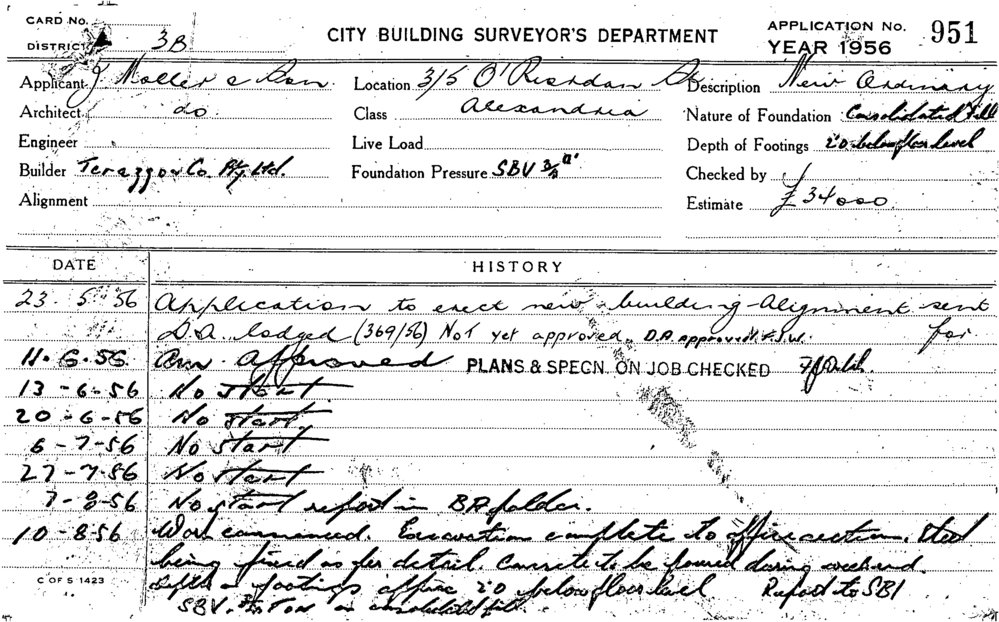 CARD No.
DISTRICT 3B
CITY BUILDING SURVEYOR'S DEPARTMENT
APPLICATION No. 951
YEAR 1956
Applicant J Moller & Son Location 3/5 O'Riordan St Description New Ordinary
Architect do. Class Alexandria Nature of Foundation Consolidated Fill
Engineer Live Load Depth of Footings 2'0 below floor level
Builder Terazzo & Co. Pty. Ltd. Foundation Pressure SBV Checked by
Alignment Estimate £34000
DATE HISTORY
23 5 56 Application to erect new building - Alignment sent for
D.A. lodged (369/56) Not yet approved. D.A. approved
11.6.56 Approved PLANS & SPECN. ON JOB CHECKED
13-6-56 No start.
20-6-56 No start.
6-7-56 No start
27-7-56 No start
7-8-56 No start report in BA folder.
10-8-56 Work commenced. Excavations complete to office section. Steel
being fixed as per detail. Concrete to be poured during weekend.
Depth of footings office 2'0 below floor level Report to SBI
SBV. TON on consolidated fill.
C OF S 1423